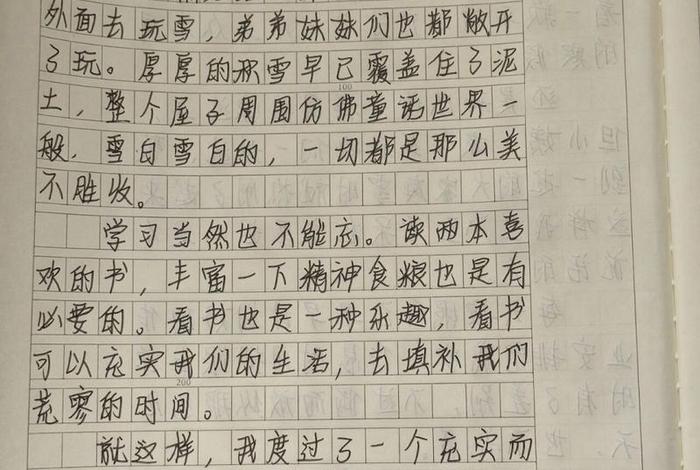 外面去玩雪，弟弟妹妹们也都敞开
了玩。厚厚的积雪早已覆盖住了泥
100
土，整个屋子周围仿佛童话世界一
般，雪白雪白的，一切都是那么美
不胜收。
学习当然也不能忘。读两本喜
欢的书，丰富一下精神食粮也是有
必要的。看书也是一种乐趣，看书
可以充实我们的生活，去填补我们
200
荒寥的时间。
就这样，我度过了一个充实而